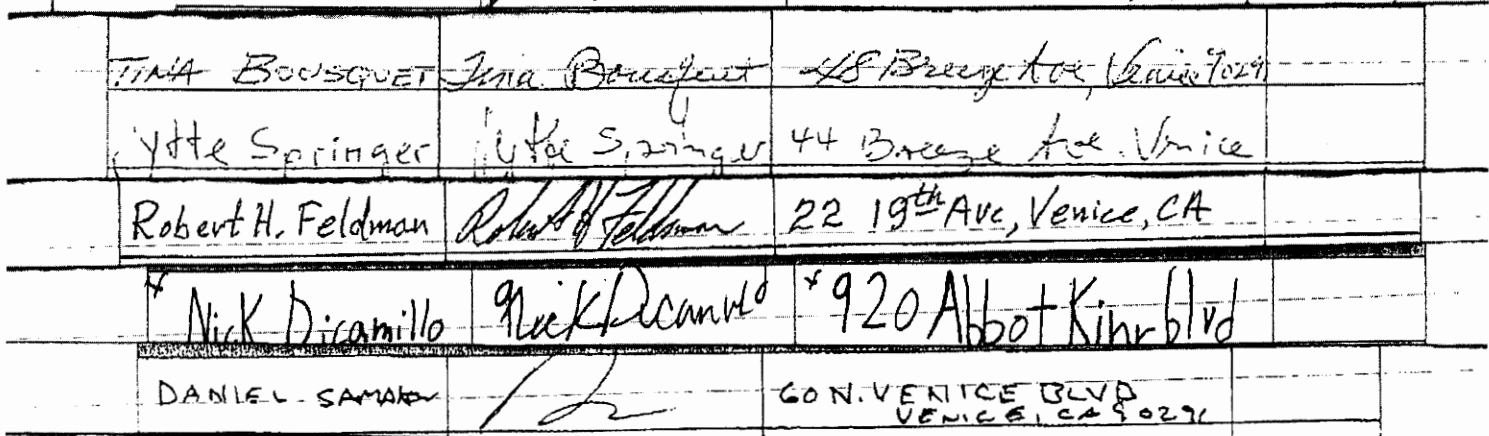 TINA BOUSQUET Tina Bousquet 48 Breeze Ave, Venice 90291
ytte Springer ytte Springer 44 Breeze Ave. Venice
Robert H. Feldman Robert H Feldman 22 19th Ave, Venice, CA
* Nick Dicamillo Nick Dicamillo * 920 Abbot Kinr blvd
DANIEL SAMAKOW 60 N. VENICE BLVD
VENICE, CA 90291